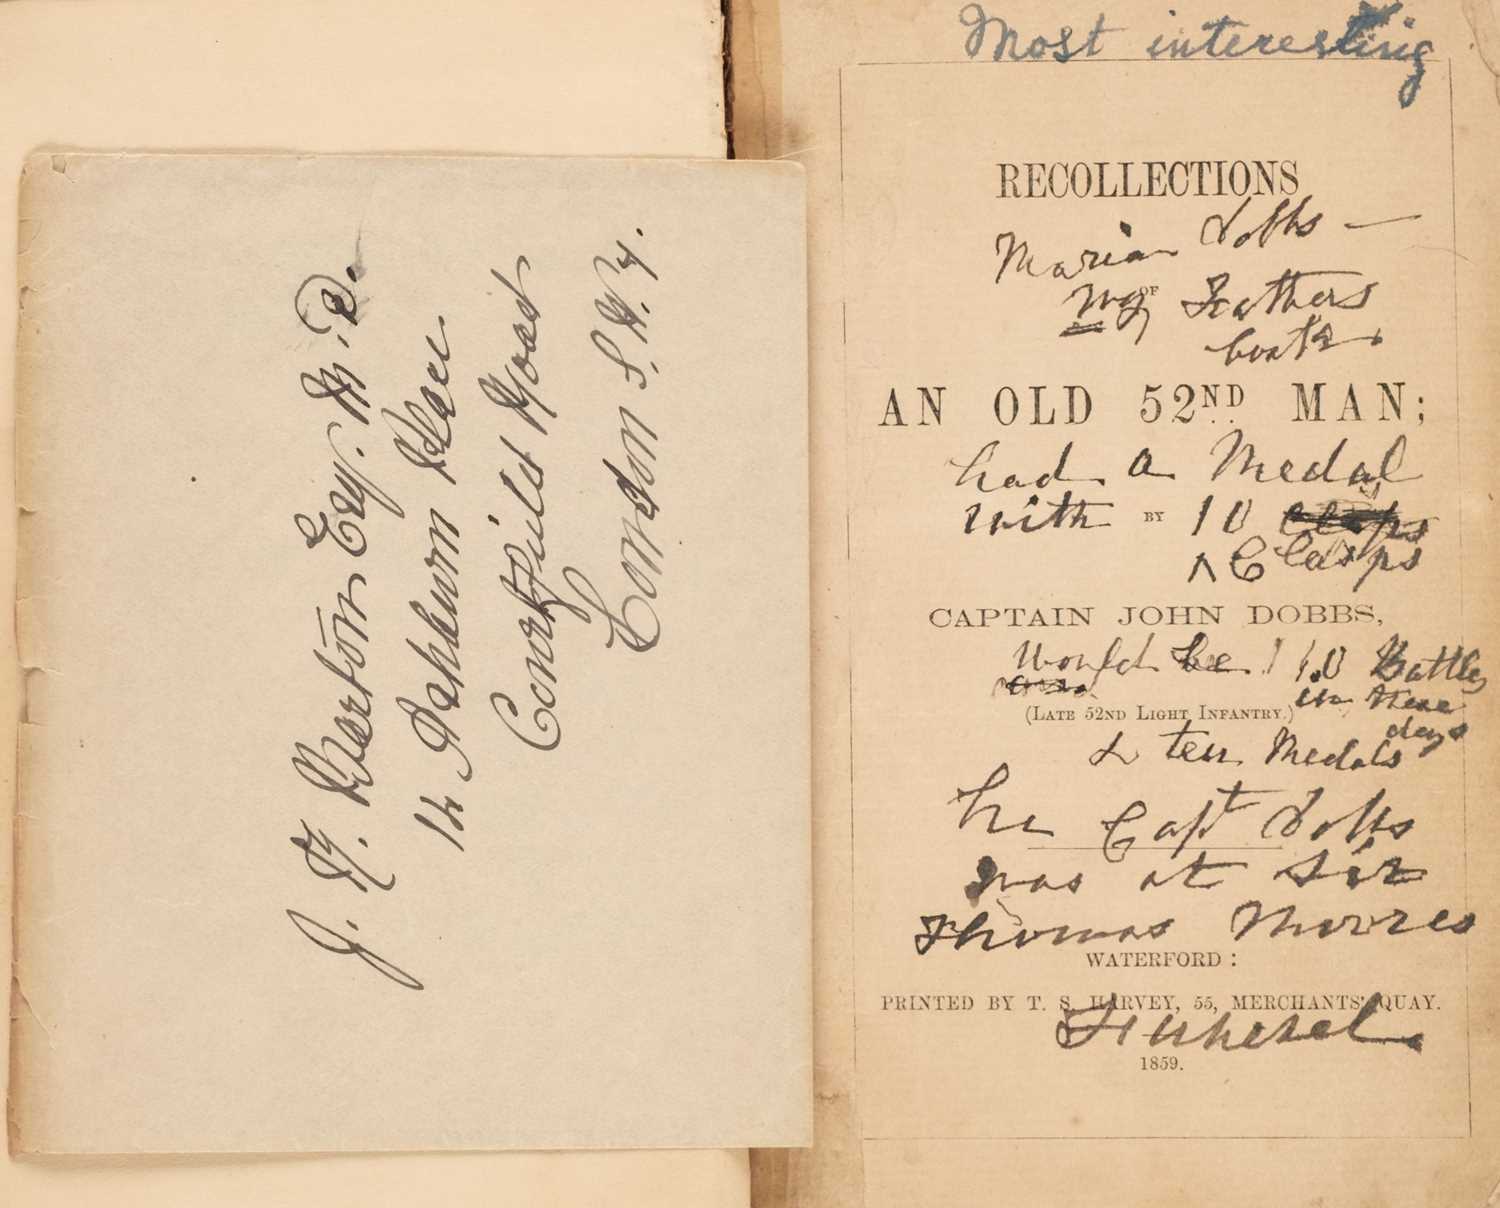 J. H. Barton Esq. M.D.
14 Ashburn Place
Courtfield Road
London S.W.7.
Most interesting
RECOLLECTIONS
Marian Dobbs —
OF
My Fathers
book.
AN OLD 52ND MAN;
had a Medal
with BY 10 clasps
^ Clasps
CAPTAIN JOHN DOBBS,
Would be 10 Battles
in these
(LATE 52ND LIGHT INFANTRY.)
days
& ten Medals
he Capt Dobbs
was at Sir
Thomas Moores
WATERFORD:
PRINTED BY T. S. HARVEY, 55, MERCHANTS' QUAY.
Funeral.
1859.